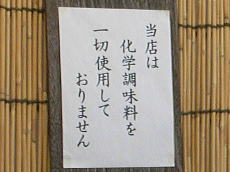 当店は
化学調味料を
一切使用して
おりません